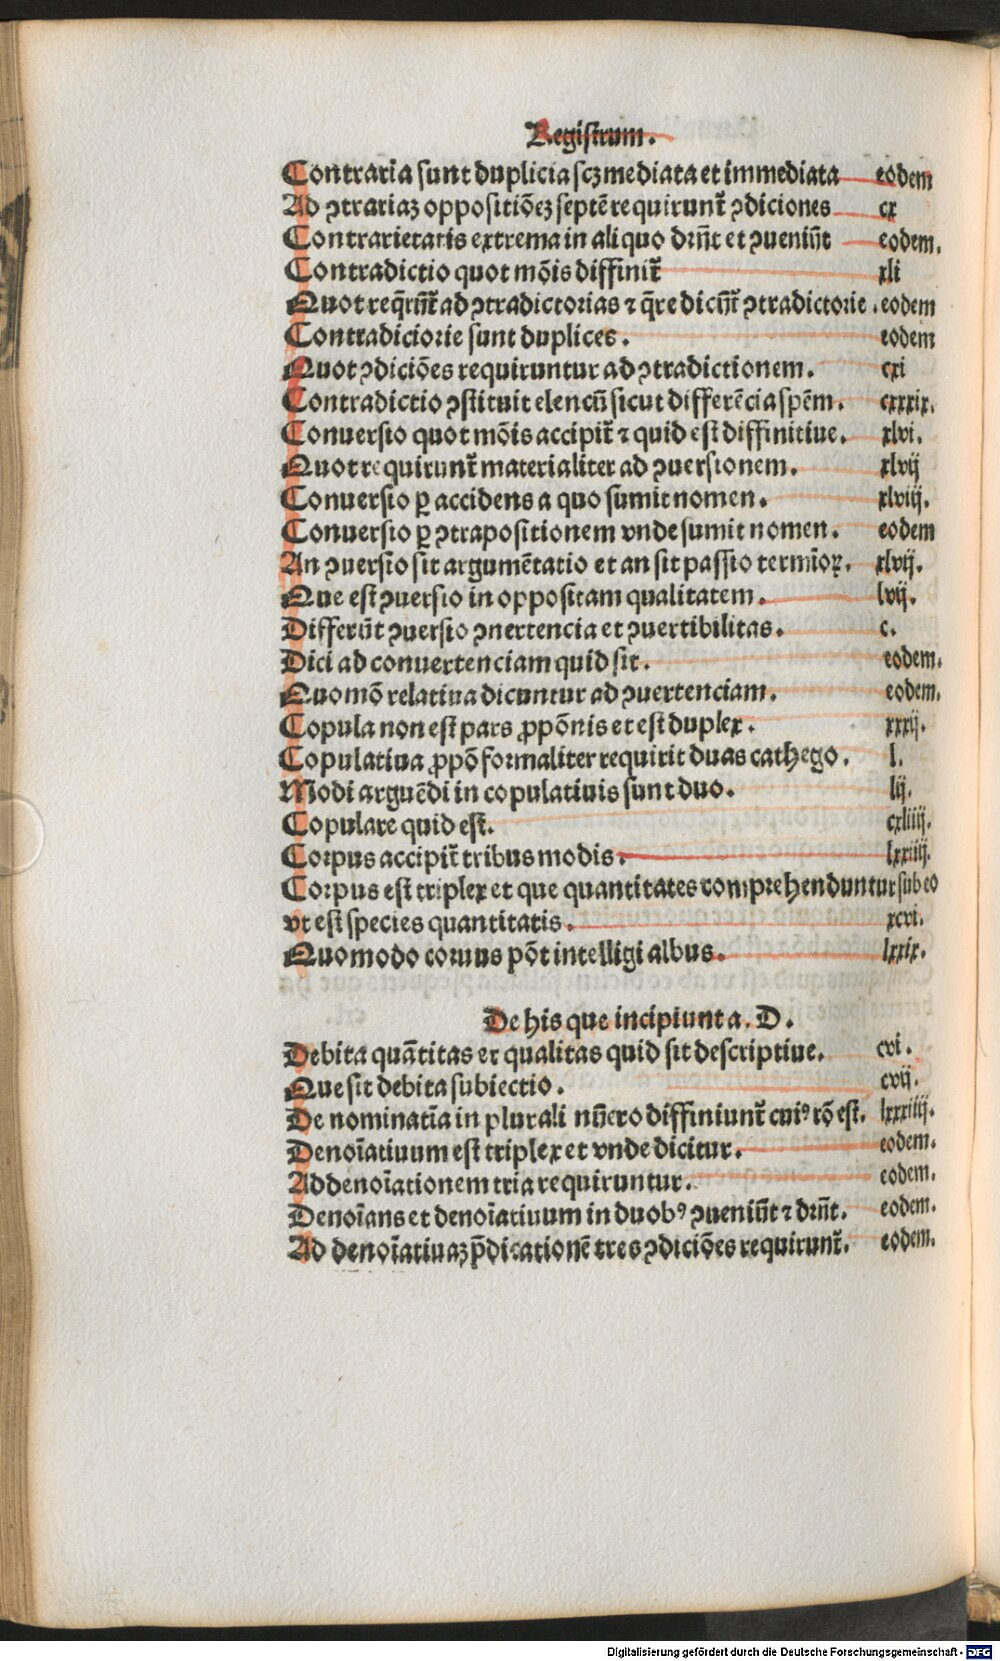 Registrum.
Contraria sunt duplicia scꝫ mediata et immediata eodem
Ad ꝯtrariaꝫ oppositiõeꝫ septẽ requirunt᷑ ꝯdiciones cx
Contrarietatis extrema in aliquo drñt et ꝯueniũt eodem.
Contradictio quot mõis diffinit᷑ xli
Quot req̃rũt᷑ ad ꝯtradictorias ⁊ q̃re dicũt᷑ ꝯtradictorie . eodem
Contradictorie sunt duplices. eodem
Quot ꝯdiciões requiruntur ad ꝯtradictionem. cxi
Contradictio ꝯstituit elencũ sicut differẽcia spẽm. cxxxix.
Conuersio quot mõis accipit᷑ ⁊ quid est diffinitiue. xlvi.
Quot requirunt᷑ materialiter ad ꝯuersionem. xlvij
Conuersio ꝑ accidens a quo sumit nomen. xlviij.
Conuersio ꝑ ꝯtrapositionem vnde sumit nomen. eodem
An ꝯuersio sit argumẽtatio et an sit passio termĩoꝝ. xlvij.
Que est ꝯuersio in oppositam qualitatem. lvij.
Differũt ꝯuersio ꝯnertencia et ꝯuertibilitas. c.
Dici ad conuertenciam quid sit. eodem.
Quomõ relatiua dicuntur ad ꝯuertenciam. eodem.
Copula non est pars ꝓpõnis et est duplex. xxxij.
Copulatiua ꝓpõ formaliter requirit duas cathego. l.
Modi arguẽdi in copulatiuis sunt duo. lij.
Copulare quid est. cxliiij.
Corpus accipit᷑ tribus modis. lxxiiij.
Corpus est triplex et que quantitates comprehenduntur sub eo
vt est species quantitatis. xcvi.
Quomodo coruus põt intelligi albus. lxxix.
De his que incipiunt a. D.
Debita quãtitas et qualitas quid sit descriptiue. cvi.
Que sit debita subiectio. cvij.
De nominatĩa in plurali nũero diffiniunt᷑ cuiꝰ rõ est. lxxxiiij.
Denoĩatiuum est triplex et vnde dicitur. eodem.
Ad denoĩationem tria requiruntur. eodem.
Denoĩans et denoĩatiuum in duobꝰ ꝯueniũt ⁊ drñt. eodem.
Ad denoĩatiuaꝫ p̃dicationẽ tres ꝯdiciões requirunt᷑. eodem.
Digitalisierung gefördert durch die Deutsche Forschungsgemeinschaft - DFG